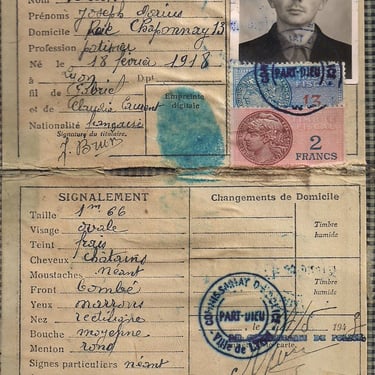 Prénoms Joseph Marius
Domicile rue Chaponnay 13
Profession
Né le 18 février 1918
Lyon Dpt
fil de
et de Claudia Laurent
Nationalité française
Signature du titulaire,
Empreinte
digitale
PART-DIEU
13
2
FRANCS
SIGNALEMENT
Changements de Domicile
Taille 1m66
Visage ovale
Teint frais
Cheveux châtains
Moustaches néant
Front bombé
Yeux marrons
Nez rectiligne
Bouche moyenne
Menton rond
Signes particuliers néant
Timbre
humide
Timbre
humide
COMMISSARIAT DE POLICE
PART-DIEU
Ville de Lyon
le 194